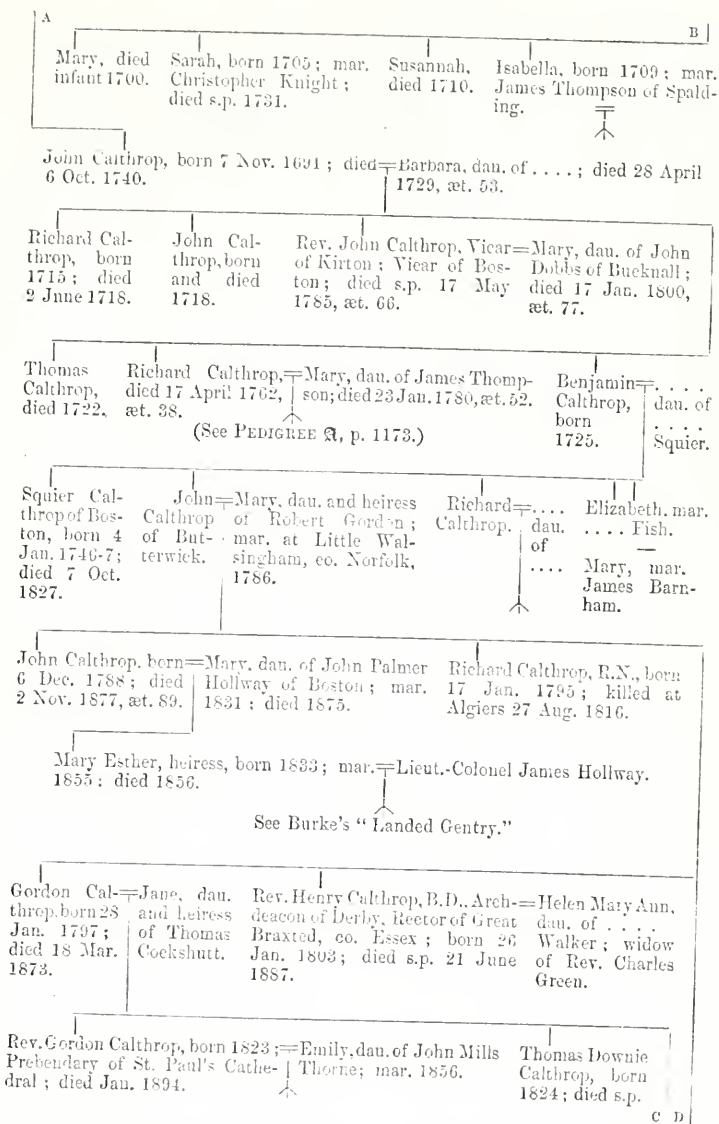 A
B
Mary, died
infant 1700.
Sarah, born 1705 ; mar.
Christopher Knight ;
died s.p. 1731.
Susannah,
died 1710.
Isabella, born 1709 ; mar.
James Thompson of Spald-
ing.
John Calthrop, born 7 Nov. 1691 ; died
6 Oct. 1740.
Barbara, dau. of . . . . ; died 28 April
1729, æt. 53.
Richard Cal-
throp, born
1715 ; died
2 June 1718.
John Cal-
throp, born
and died
1718.
Rev. John Calthrop, Vicar
of Kirton ; Vicar of Bos-
ton ; died s.p. 17 May
1785, æt. 66.
Mary, dau. of John
Dobbs of Bucknall ;
died 17 Jan. 1800,
æt. 77.
Thomas
Calthrop,
died 1722.
Richard Calthrop,
died 17 April 1762,
æt. 38.
Mary, dau. of James Thomp-
son; died 23 Jan. 1780, æt. 52.
(See PEDIGREE A, p. 1173.)
Benjamin
Calthrop,
born
1725.
. . . .
dau. of
. . . .
Squier.
Squier Cal-
throp of Bos-
ton, born 4
Jan. 1746-7;
died 7 Oct.
1827.
John
Calthrop
of But-
terwick.
Mary, dau. and heiress
of Robert Gordon ;
mar. at Little Wal-
singham, co. Norfolk,
1786.
Richard
Calthrop.
. . . .
dau.
of
. . . .
Elizabeth. mar.
. . . . Fish.
—
Mary, mar.
James Barn-
ham.
John Calthrop. born
6 Dec. 1788 ; died
2 Nov. 1877, æt. 89.
Mary. dau. of John Palmer
Hollway of Boston ; mar.
1831 ; died 1875.
Richard Calthrop, R.N., born
17 Jan. 1795 ; killed at
Algiers 27 Aug. 1816.
Mary Esther, heiress, born 1833 ; mar.
1855 ; died 1856.
Lieut.-Colonel James Hollway.
See Burke's “ Landed Gentry.”
Gordon Cal-
throp. born 28
Jan. 1797 ;
died 18 Mar.
1873.
Jane, dau.
and heiress
of Thomas
Cockshutt.
Rev. Henry Calthrop, B.D., Arch-
deacon of Derby, Rector of Great
Braxted, co. Essex ; born 26
Jan. 1803 ; died s.p. 21 June
1887.
Helen Mary Ann,
dau. of . . . .
Walker ; widow
of Rev. Charles
Green.
Rev. Gordon Calthrop, born 1823 ;
Prebendary of St. Paul's Cathe-
dral ; died Jan. 1894.
Emily, dau. of John Mills
Thorne; mar. 1856.
Thomas Downie
Calthrop, born
1824 ; died s.p.
C D